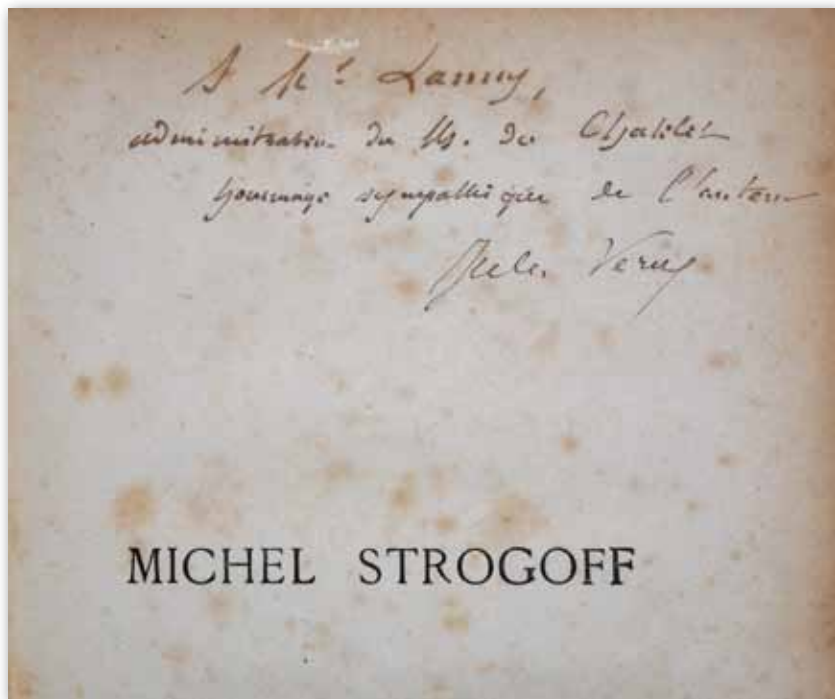 A Mr Lamy,
administrateur du th. du Chatelet
hommage sympathique de l'auteur
Jules Verne
MICHEL STROGOFF